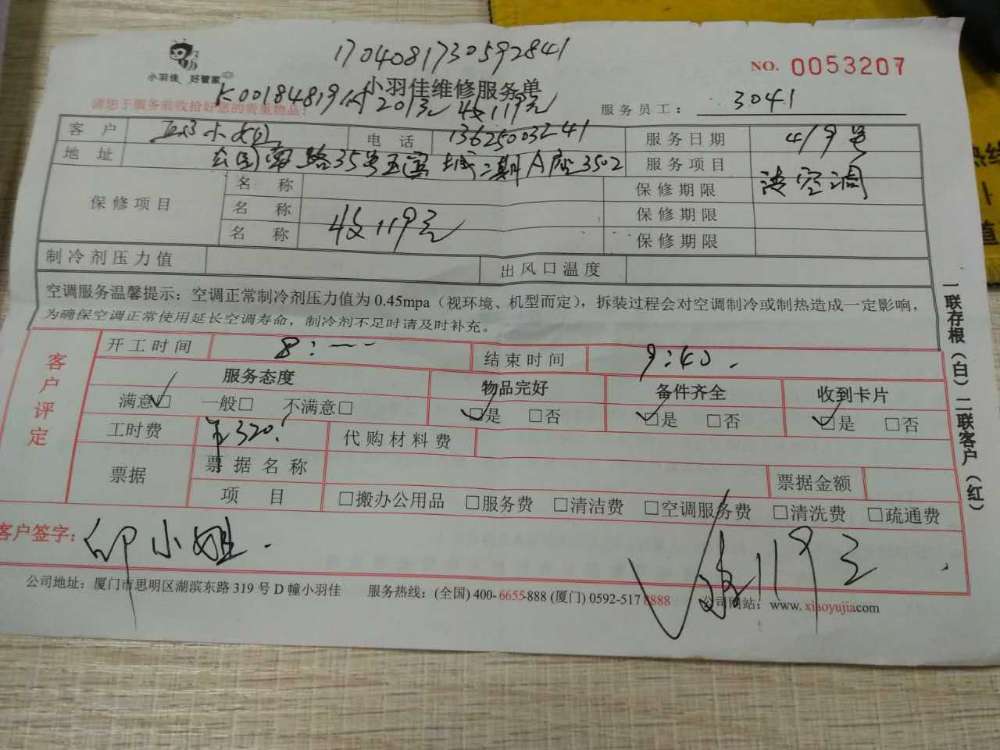 1704081730592841
小羽佳 好管家
小羽佳维修服务单
NO. 0053207
请您于服务前收拾好您的贵重物品!
K00184819 付201元 收119元
服务员工: 3041
客 户 小 电 话 13625003241 服务日期 4/9号
地 址 公园南路35号 城二期A座3502 服务项目 清空调
保修项目 名 称 保修期限
名 称 收119元 保修期限
名 称 保修期限
制冷剂压力值 出风口温度
空调服务温馨提示: 空调正常制冷剂压力值为 0.45mpa (视环境、机型而定), 拆装过程会对空调制冷或制热造成一定影响,
为确保空调正常使用延长空调寿命, 制冷剂不足时请及时补充。
客户评定
开工时间 8:-- 结束时间 9:40.
服务态度 物品完好 备件齐全 收到卡片
满意□ 一般□ 不满意□ □是 □否 □是 □否 □是 □否
工时费 ¥320. 代购材料费
票据 票据名称 票据金额
项 目 □搬办公用品 □服务费 □清洁费 □空调服务费 □清洗费 □疏通费
客户签字: 小姐. 收119元
公司地址: 厦门市思明区湖滨东路 319 号 D 幢小羽佳 服务热线: (全国) 400-6655-888 (厦门) 0592-517 8888 公司网站: www.xiaoyujia.com
一联存根(白)二联客户(红)